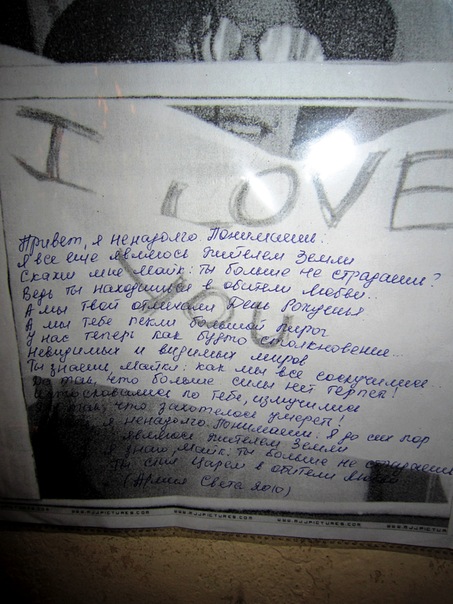 I LOVE
YOU
Привет, я ненадолго. Понимаешь:
Я все еще являюсь жителем Земли
Скажи мне Майк: ты больше не страдаешь?
Ведь ты находишься в обители любви...
А мы твой отмечали День Рожденья
А мы тебе пекли большой пирог
У нас теперь как будто столкновение...
Невидимых и видимых миров
Ты знаешь, Майкл: как мы все соскучились...
До так, что больше силы нет терпеть!
по тебе, измучились
так, что захотелось умереть!
я ненадолго. Понимаешь: Я до сих пор
являюсь жителем Земли
Я знаю, Майк: ты больше не страдаешь
Ты стал Царем в обители любви
(Армия Света 2010)
WWW.MJJPICTURES.COM WWW.MJJPICTURES.COM WWW.MJJPICTURES.COM